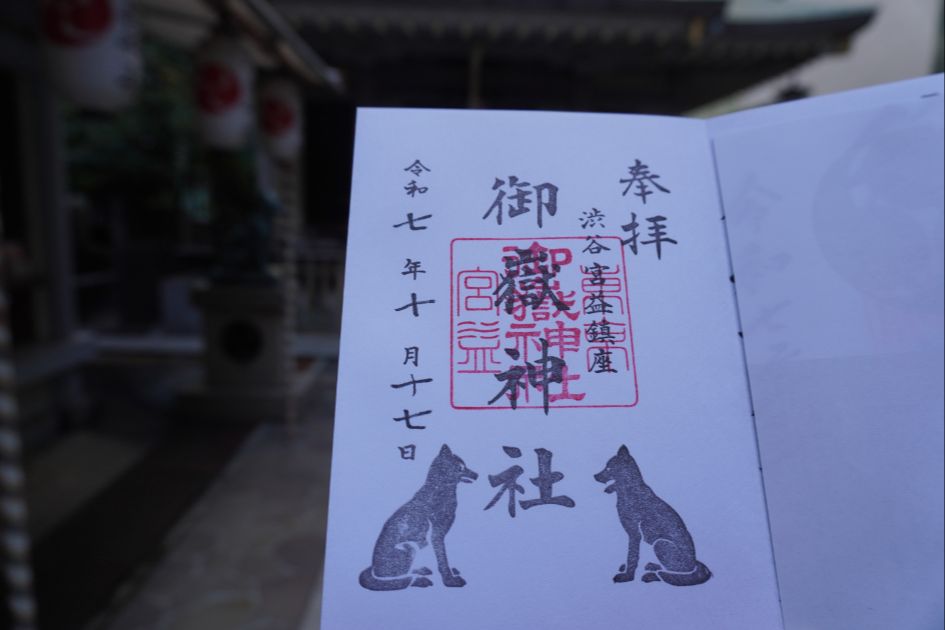 奉拝
渋谷宮益鎮座
御嶽神社
令和七年十月十七日
東京
御嶽神社
宮益